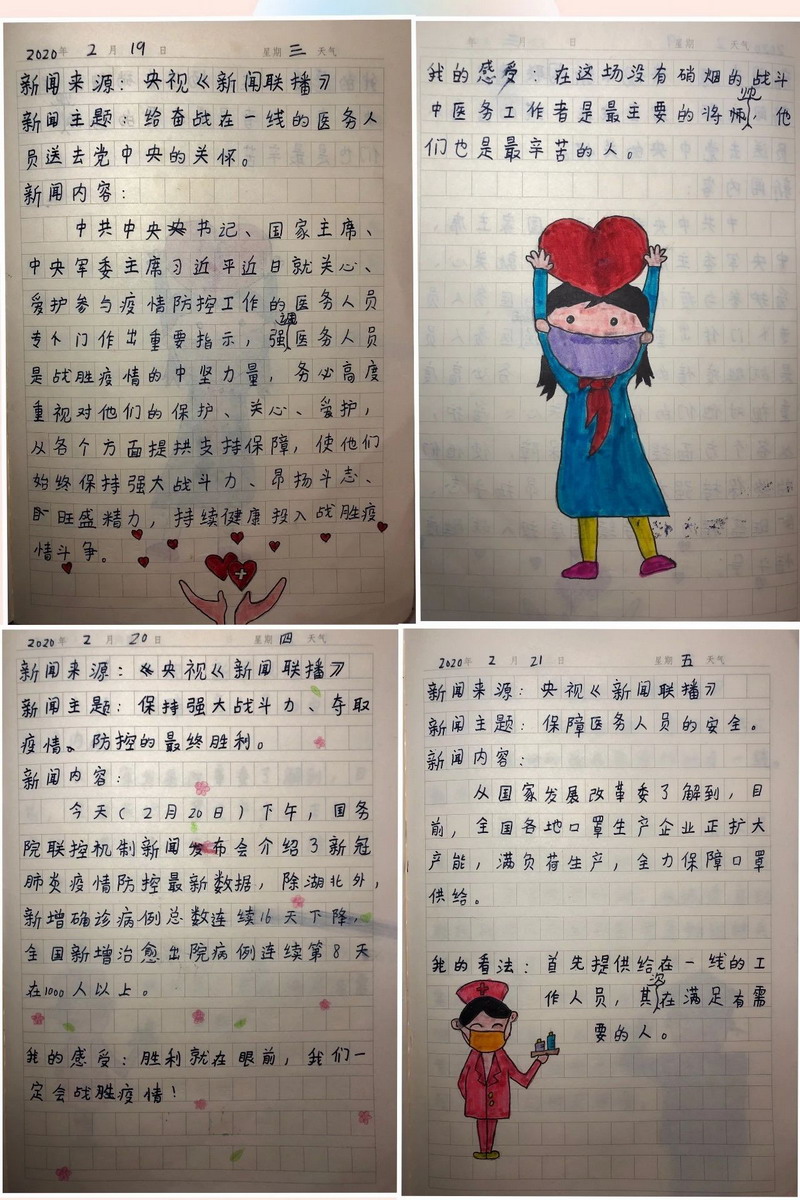 2020年 2 月 19 日 星期 三 天气
新闻来源：央视《新闻联播》
新闻主题：给奋战在一线的医务人
员送去党中央的关怀。
新闻内容：
中共中央书记、国家主席、
中央军委主席习近平近日就关心、
爱护参与疫情防控工作的医务人员
专门作出重要指示，强调医务人员
是战胜疫情的中坚力量，务必高度
重视对他们的保护、关心、爱护，
从各个方面提拱支持保障，使他们
始终保持强大战斗力、昂扬斗志、
旺盛精力，持续健康投入战胜疫
情斗争。
年 月 日 星期 天气
我的感受：在这场没有硝烟的战斗
中医务工作者是最主要的将帅，他
们也是最辛苦的人。
2020年 2 月 20 日 星期 四 天气
新闻来源：《央视《新闻联播》
新闻主题：保持强大战斗力、夺取
疫情、防控的最终胜利。
新闻内容：
今天（2月20日）下午，国务
院联控机制新闻发布会介绍了新冠
肺炎疫情防控最新数据，除湖北外，
新增确诊病例总数连续16天下降，
全国新增治愈出院病例连续第8天
在1000人以上。
我的感受：胜利就在眼前，我们一
定会战胜疫情！
2020年 2 月 21 日 星期 五 天气
新闻来源：央视《新闻联播》
新闻主题：保障医务人员的安全。
新闻内容：
从国家发展改革委了解到，目
前，全国各地口罩生产企业正扩大
产能，满负荷生产，全力保障口罩
供给。
我的看法：首先提供给在一线的工
作人员，其次在满足有需
要的人。